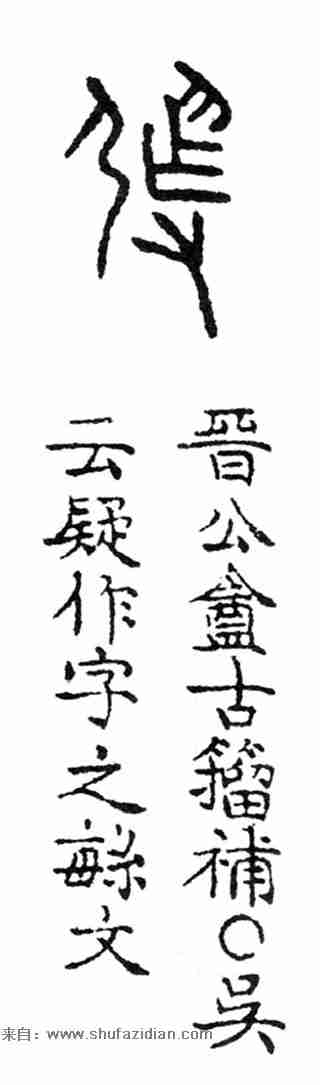 晉公盦古籀補○吳
云疑作字之緐文
来自：www.shufazidian.com